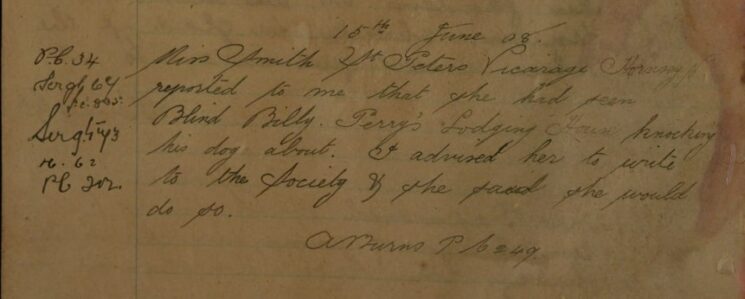 15th June 08.
P.C. 34
Sergt 64
P.C. 202.
Miss Smith St Peters Vicarage
reported to me that she had seen
Blind Billy. Perry's Lodging House knocking
his dog about. I advised her to write
to the Society & she said she would
do so.
A Burns P C 249